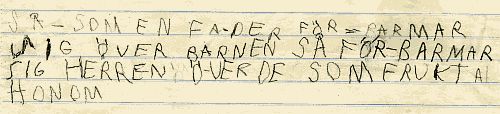 SR-SOM EN FA-DER FÖR-BARMAR
SIG ÖVER BARNEN SÅ FÖR-BARMAR
SIG HERREN ÖVER DE SOM FRUKTA
HONOM